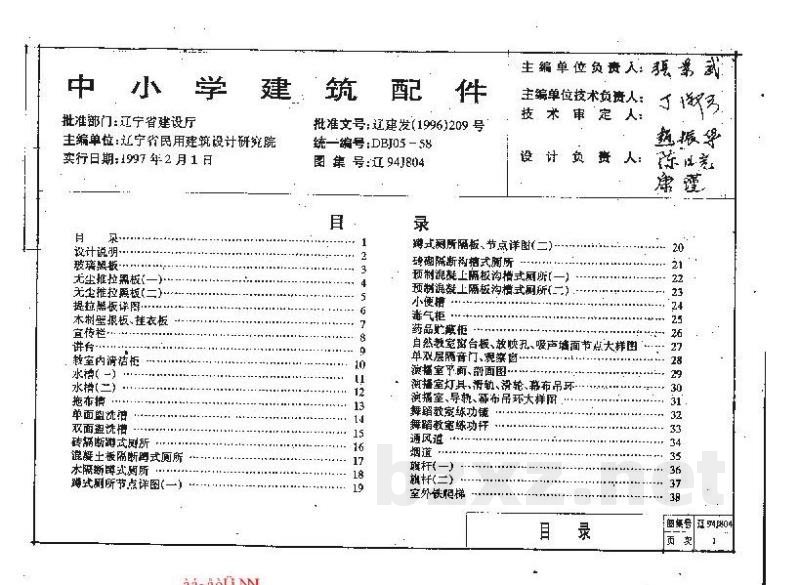 中小学建筑配件
批准部门:辽宁省建设厅
主编单位:辽宁省民用建筑设计研究院
实行日期:1997年2月1日
批准文号:辽建发(1996)209号
统一编号:DBJ05-58
图集号:辽94J804
主编单位负责人:張景武
主编单位技术负责人:
技术审定人:
设计负责人:
目录
目录 1
设计说明 2
玻璃黑板 3
无尘推拉黑板(一) 4
无尘推拉黑板(二) 5
提拉黑板详图 6
木制壁报板、挂衣板 7
宣传栏 8
讲台 9
教室内清洁柜 10
水槽(一) 11
水槽(二) 12
拖布槽 13
单面盥洗槽 14
双面盥洗槽 15
砖隔断蹲式厕所 16
混凝土板隔断蹲式厕所 17
木隔断蹲式厕所 18
蹲式厕所节点详图(一) 19
蹲式厕所隔板、节点详图(二) 20
砖砌隔断沟槽式厕所 21
预制混凝土隔板沟槽式厕所(一) 22
预制混凝土隔板沟槽式厕所(二) 23
小便槽 24
毒气柜 25
药品贮藏柜 26
自然教室窗台板、放映孔、吸声墙面节点大样图 27
单双层隔音门、观察窗 28
演播室平面、剖面图 29
演播室灯具、滑轨、滑轮、幕布吊环 30
演播室、导轨、幕布吊环大样图 31
舞蹈教室练功镜 32
舞蹈教室练功杆 33
通风道 34
烟道 35
旗杆(一) 36
旗杆(二) 37
室外铁爬梯 38
目录
图集号 辽94J804
页次 1